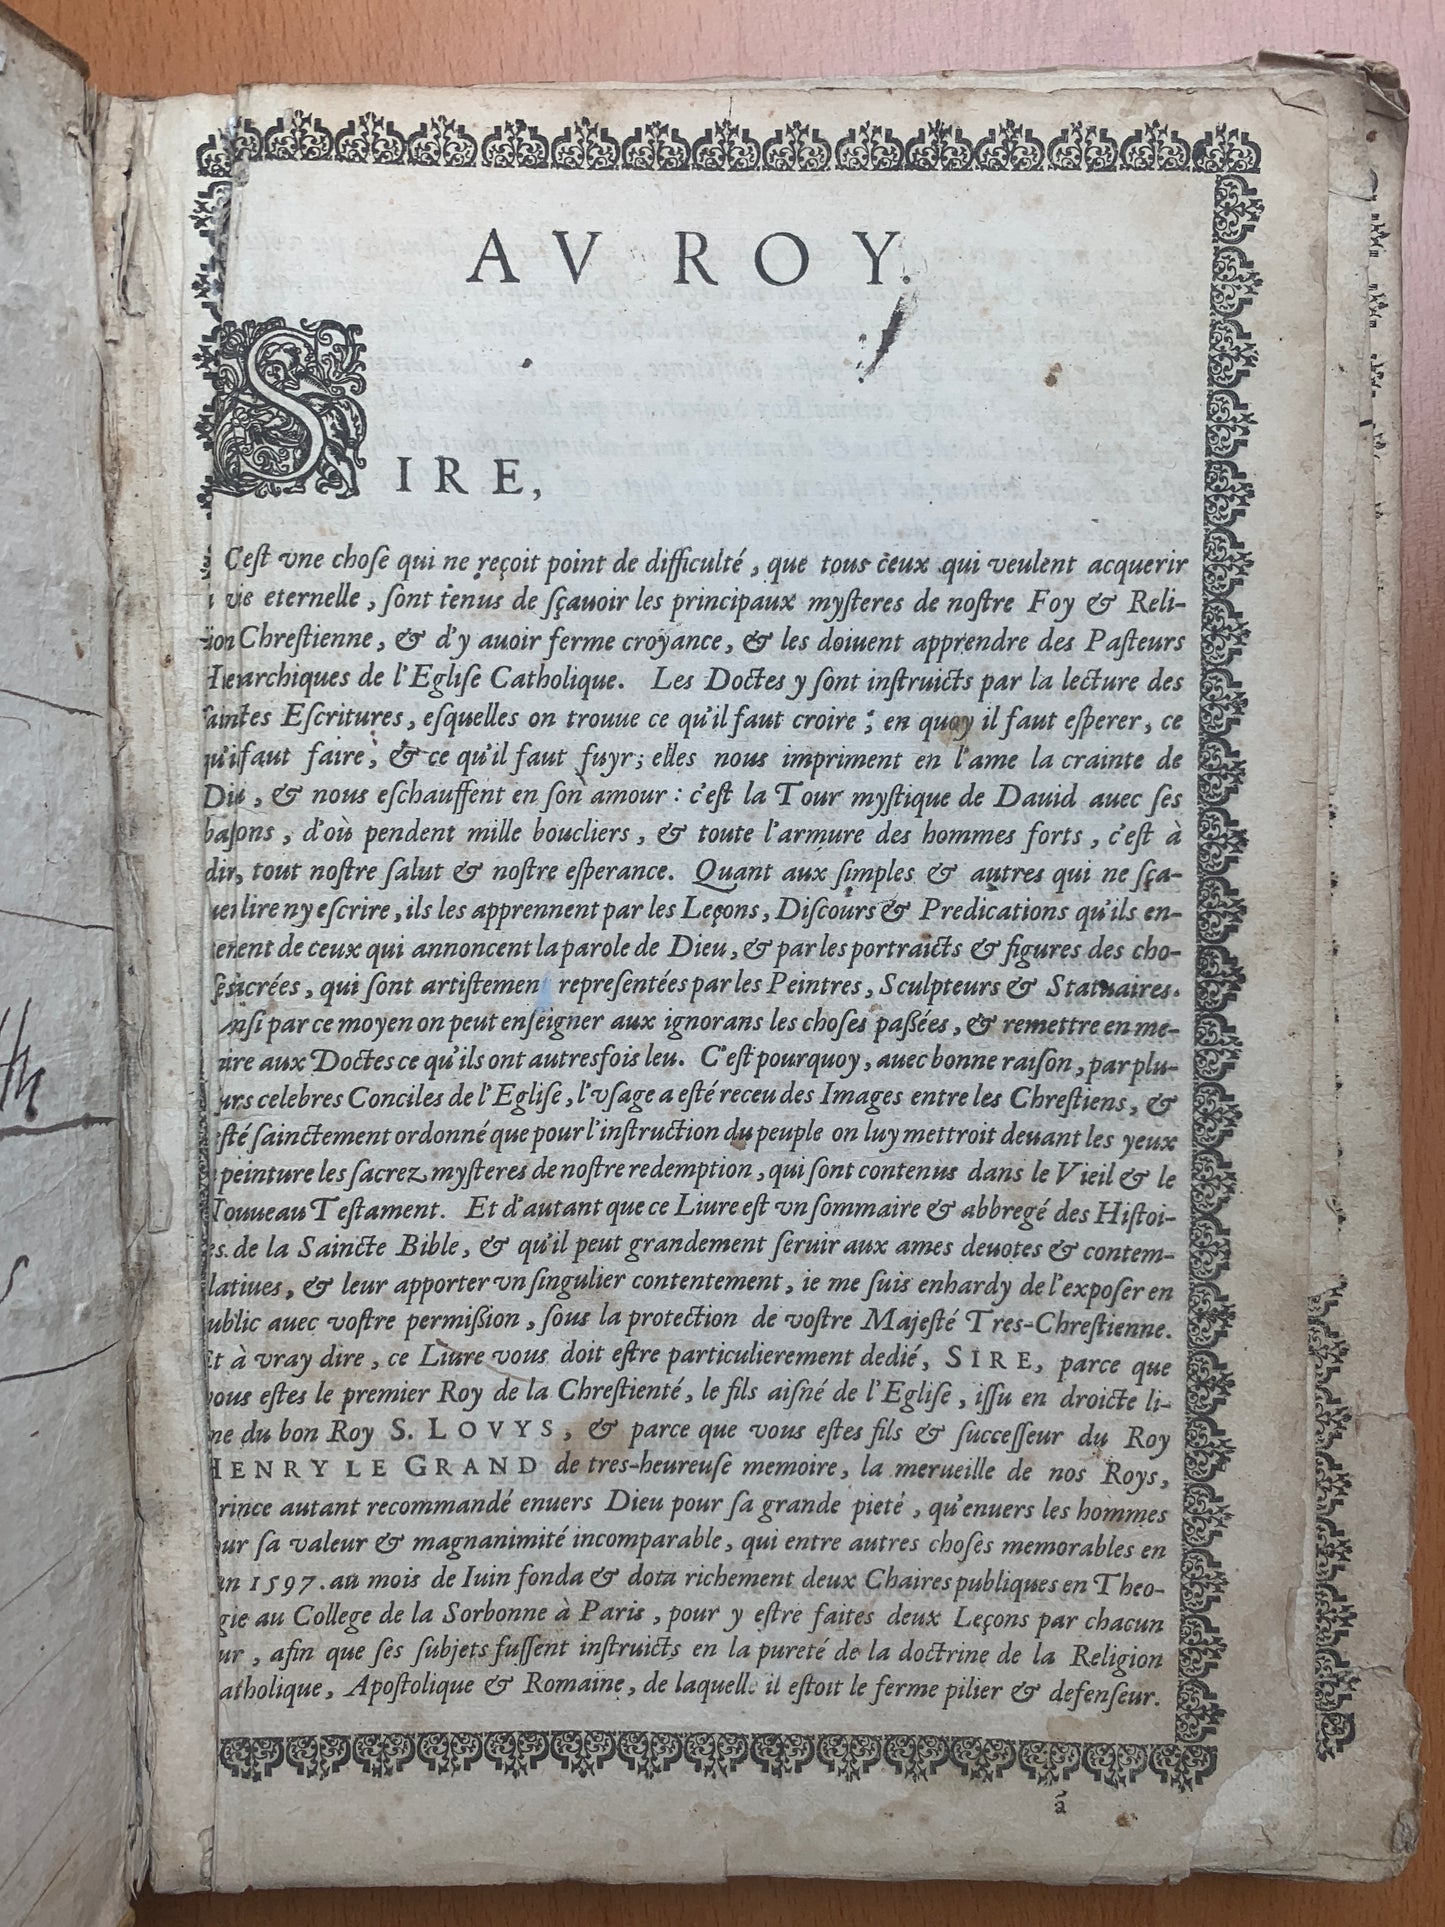 AV ROY.
SIRE,
C'est vne chose qui ne reçoit point de difficulté, que tous ceux qui veulent acquerir
vie eternelle, sont tenus de sçauoir les principaux mysteres de nostre Foy & Reli-
ion Chrestienne, & d'y auoir ferme croyance, & les doiuent apprendre des Pasteurs
Hierarchiques de l'Eglise Catholique. Les Doctes y sont instruicts par la lecture des
sainctes Escritures, esquelles on trouue ce qu'il faut croire; en quoy il faut esperer, ce
qu'il faut faire, & ce qu'il faut fuyr; elles nous impriment en l'ame la crainte de
Dieu, & nous eschauffent en son amour: c'est la Tour mystique de Dauid auec ses
bastions, d'où pendent mille boucliers, & toute l'armure des hommes forts, c'est à
dire, tout nostre salut & nostre esperance. Quant aux simples & autres qui ne sça-
uent lire ny escrire, ils les apprennent par les Leçons, Discours & Predications qu'ils en-
tendent de ceux qui annoncent la parole de Dieu, & par les portraicts & figures des cho-
ses sacrées, qui sont artistement representées par les Peintres, Sculpteurs & Statuaires.
Ainsi par ce moyen on peut enseigner aux ignorans les choses passées, & remettre en me-
moire aux Doctes ce qu'ils ont autresfois leu. C'est pourquoy, auec bonne raison, par plu-
sieurs celebres Conciles de l'Eglise, l'vsage a esté receu des Images entre les Chrestiens, &
esté sainctement ordonné que pour l'instruction du peuple on luy mettroit deuant les yeux
peinture les sacrez mysteres de nostre redemption, qui sont contenus dans le Vieil & le
Nouueau Testament. Et d'autant que ce Liure est vn sommaire & abbregé des Histoi-
es de la Saincte Bible, & qu'il peut grandement seruir aux ames deuotes & contem-
latiues, & leur apporter vn singulier contentement, ie me suis enhardy de l'exposer en
ublic auec vostre permission, sous la protection de vostre Majesté Tres-Chrestienne.
Et à vray dire, ce Liure vous doit estre particulierement dedié, SIRE, parce que
vous estes le premier Roy de la Chrestienté, le fils aisné de l'Eglise, issu en droicte li-
ne du bon Roy S. LOVYS, & parce que vous estes fils & successeur du Roy
HENRY LE GRAND de tres-heureuse memoire, la merueille de nos Roys,
rince autant recommandé enuers Dieu pour sa grande pieté, qu'enuers les hommes
our sa valeur & magnanimité incomparable, qui entre autres choses memorables en
an 1597. au mois de Iuin fonda & dota richement deux Chaires publiques en Theo-
gie au College de la Sorbonne à Paris, pour y estre faites deux Leçons par chacun
ur, afin que ses subjets fussent instruicts en la pureté de la doctrine de la Religion
atholique, Apostolique & Romaine, de laquelle il estoit le ferme pilier & defenseur.
ã